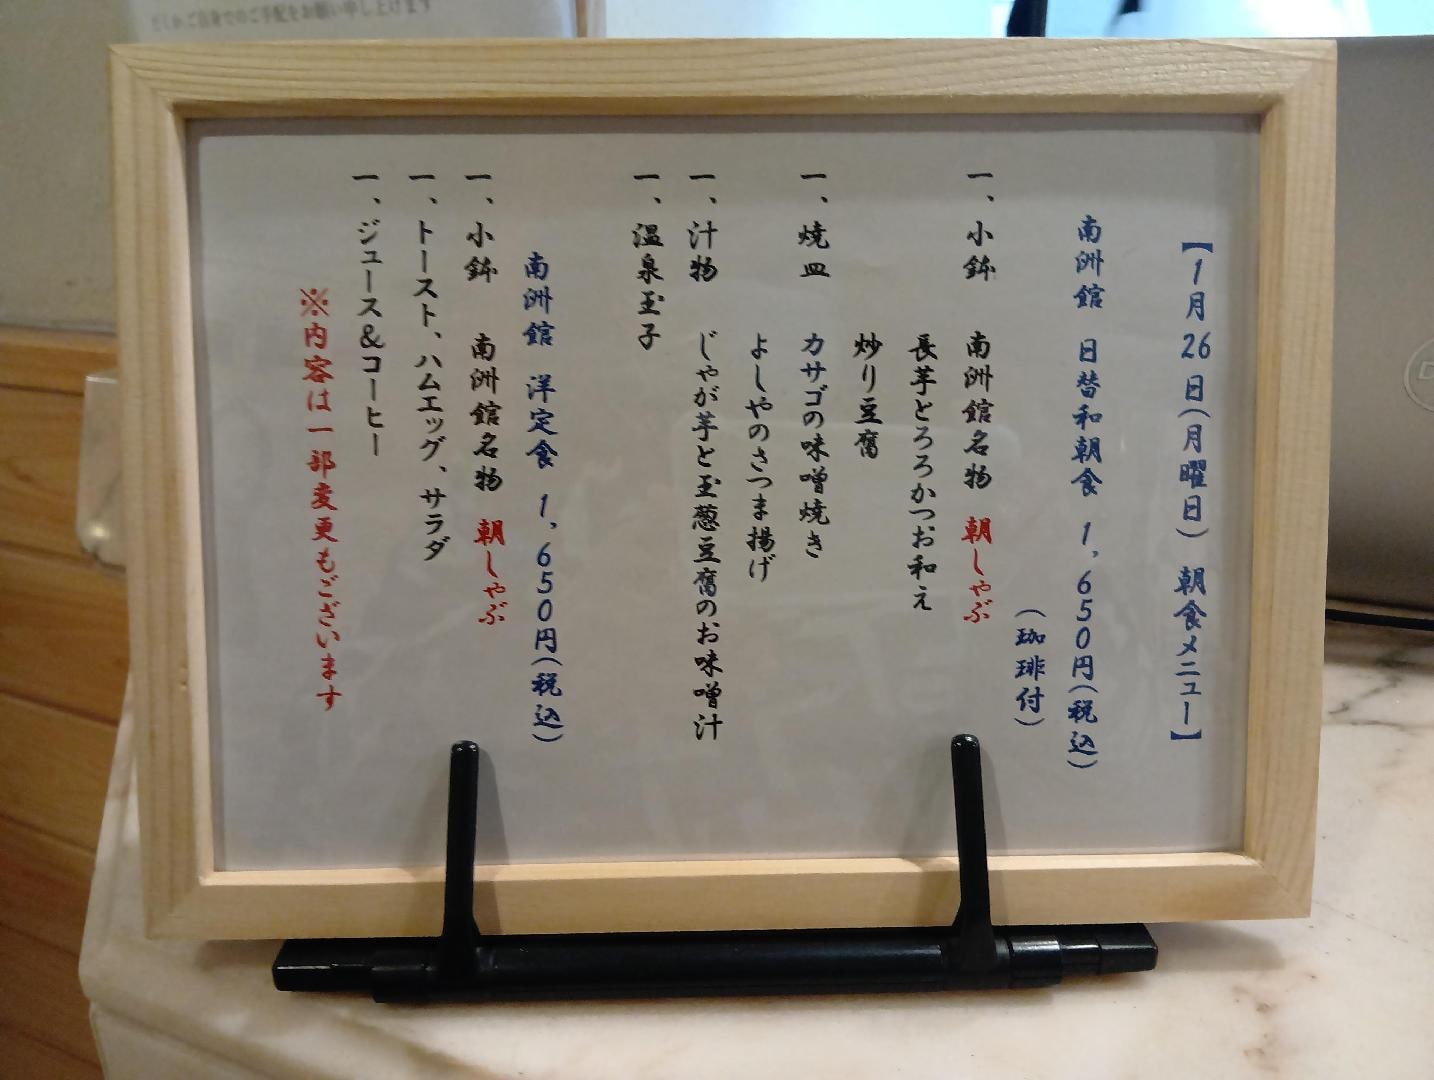 どしかご自身でのご手配をお願い申し上げます
【1月26日(月曜日) 朝食メニュー】
南洲館 日替和朝食 1,650円(税込)
(珈琲付)
一、小鉢 南洲館名物 朝しゃぶ
長芋とろろかつお和え
炒り豆腐
一、焼皿 カサゴの味噌焼き
よしやのさつま揚げ
一、汁物 じゃが芋と玉葱豆腐のお味噌汁
一、温泉玉子
南洲館 洋定食 1,650円(税込)
一、小鉢 南洲館名物 朝しゃぶ
一、トースト、ハムエッグ、サラダ
一、ジュース&コーヒー
※内容は一部変更もございます